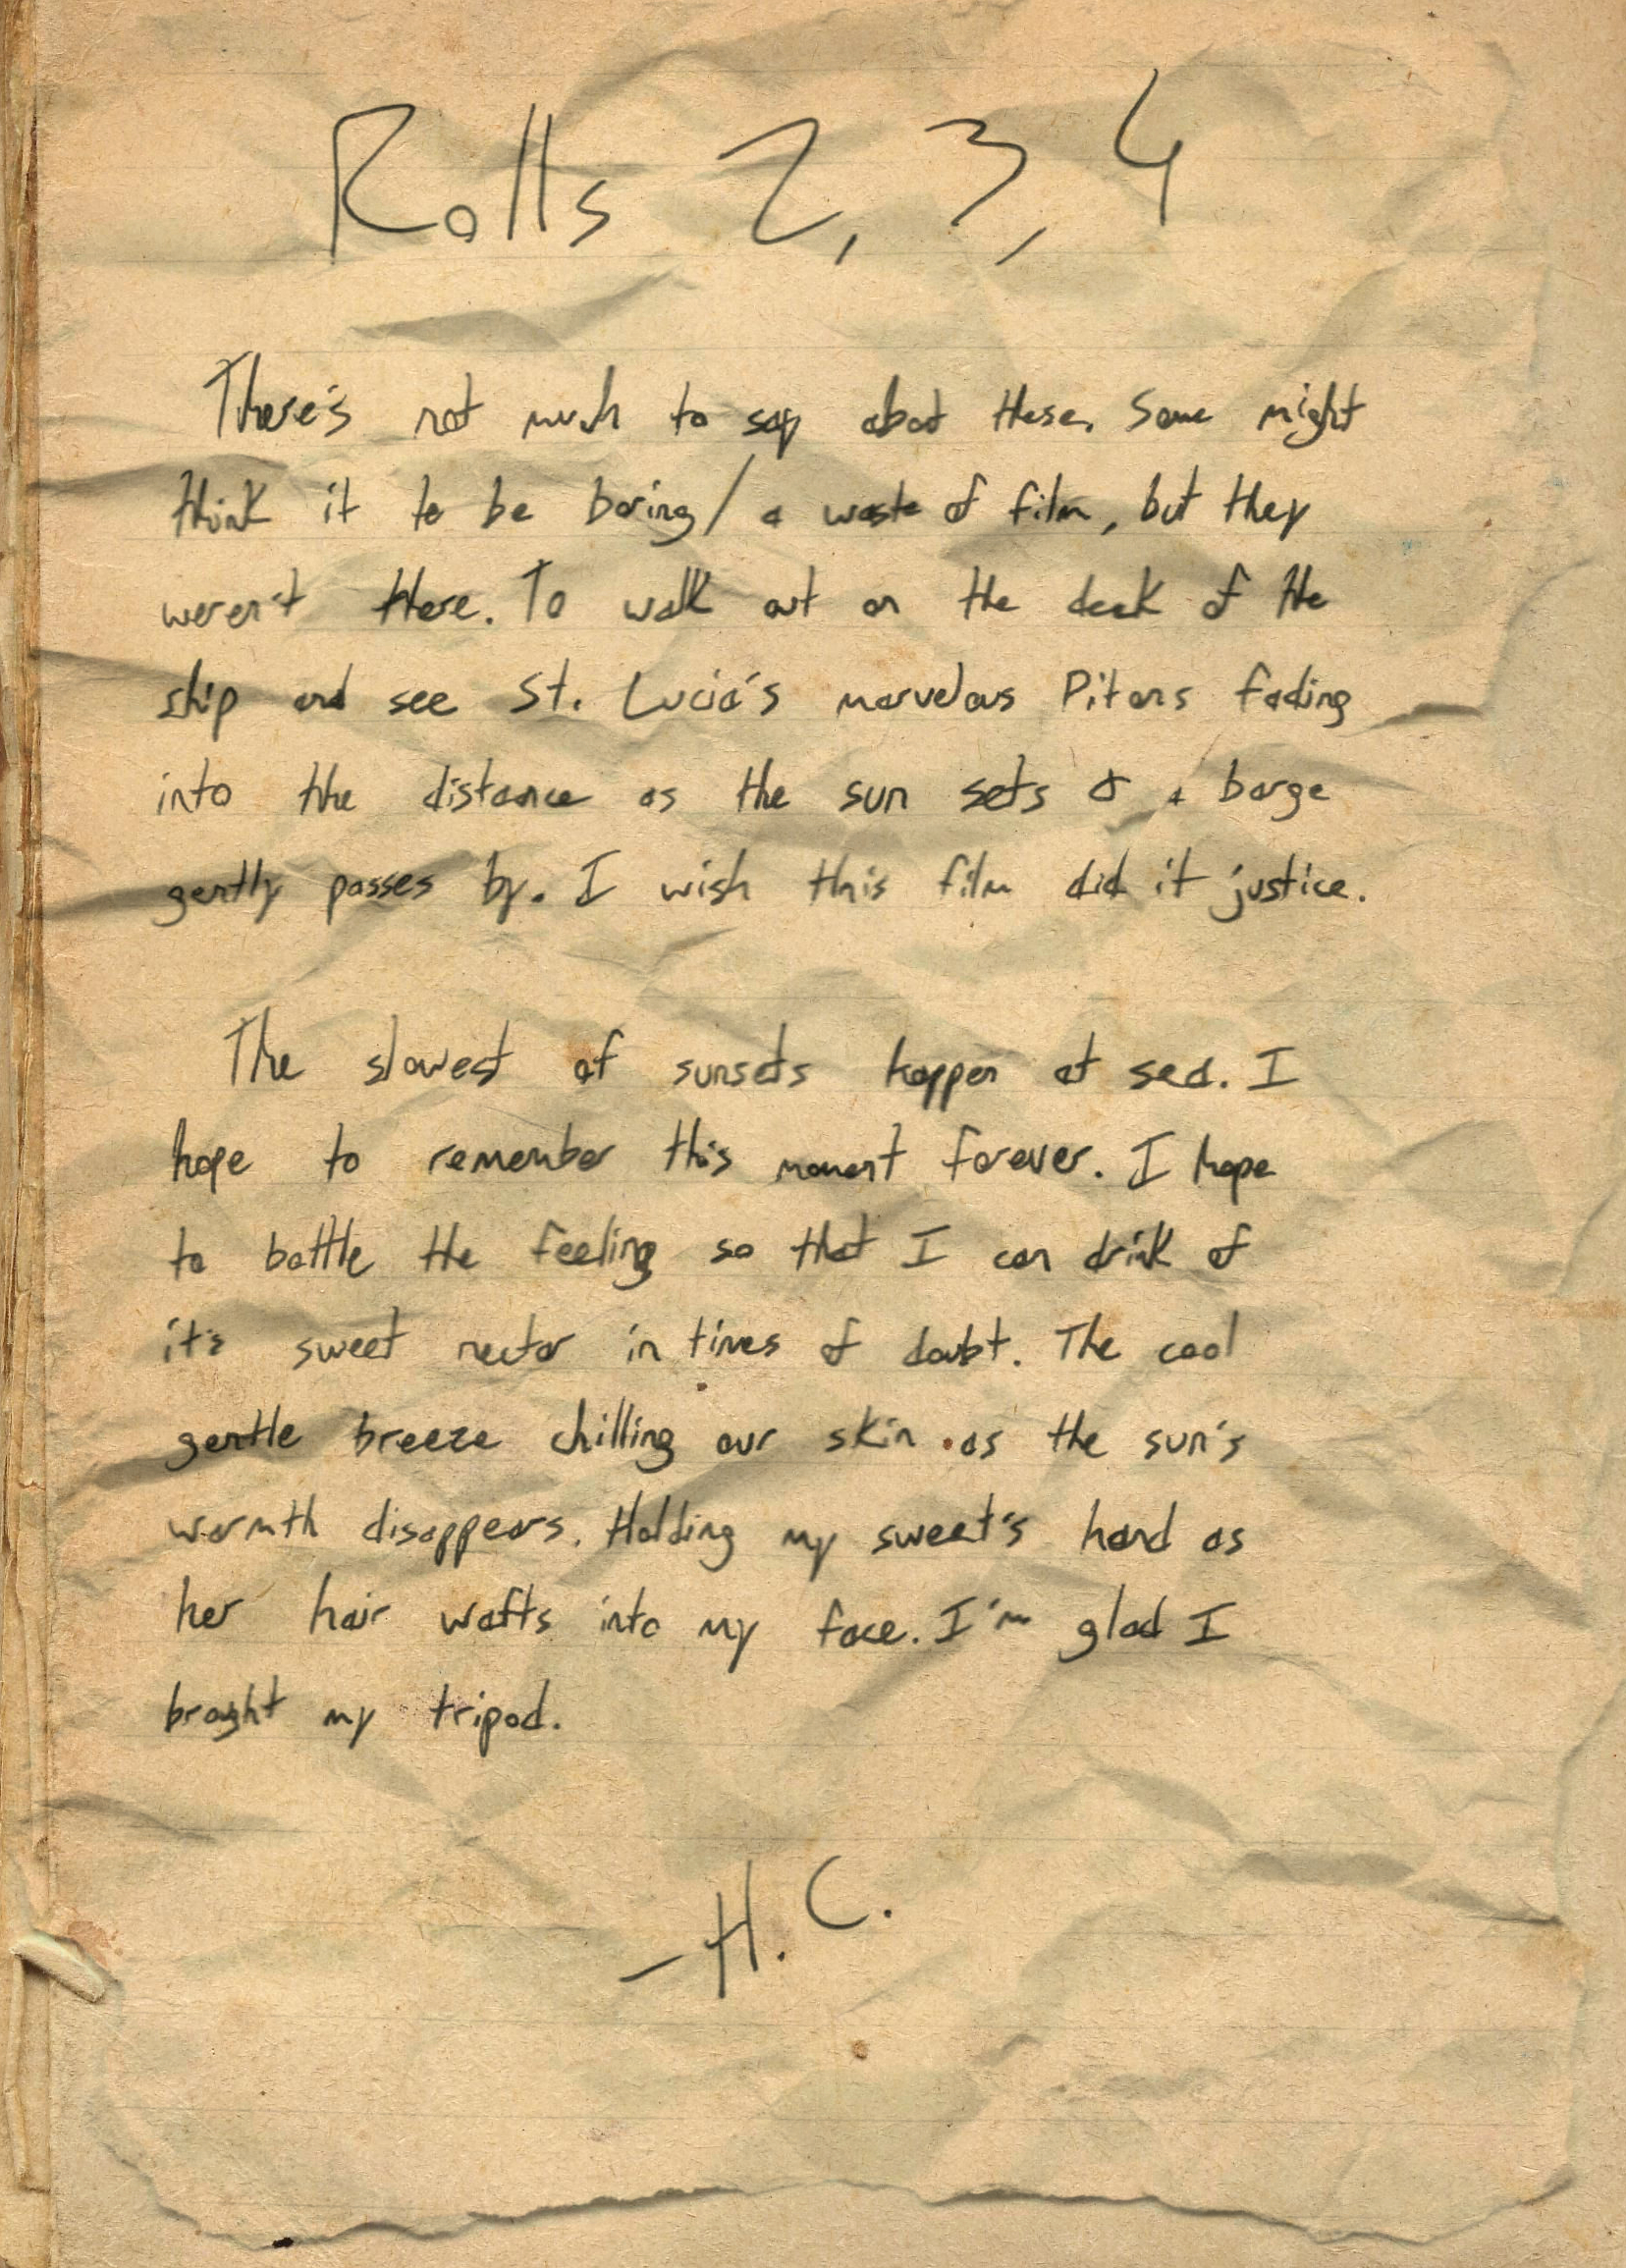 Rolls 2, 3, 4
There's not much to say about these. Some might
think it to be boring/a waste of film, but they
weren't there. To walk out on the deck of the
ship and see St. Lucia's marvelous Pitons fading
into the distance as the sun sets & a barge
gently passes by. I wish this film did it justice.
The slowest of sunsets happen at sea. I
hope to remember this moment forever. I hope
to bottle the feeling so that I can drink of
it's sweet nectar in times of doubt. The cool
gentle breeze chilling our skin as the sun's
warmth disappears. Holding my sweet's hand as
her hair wafts into my face. I'm glad I
brought my tripod.
-H.C.